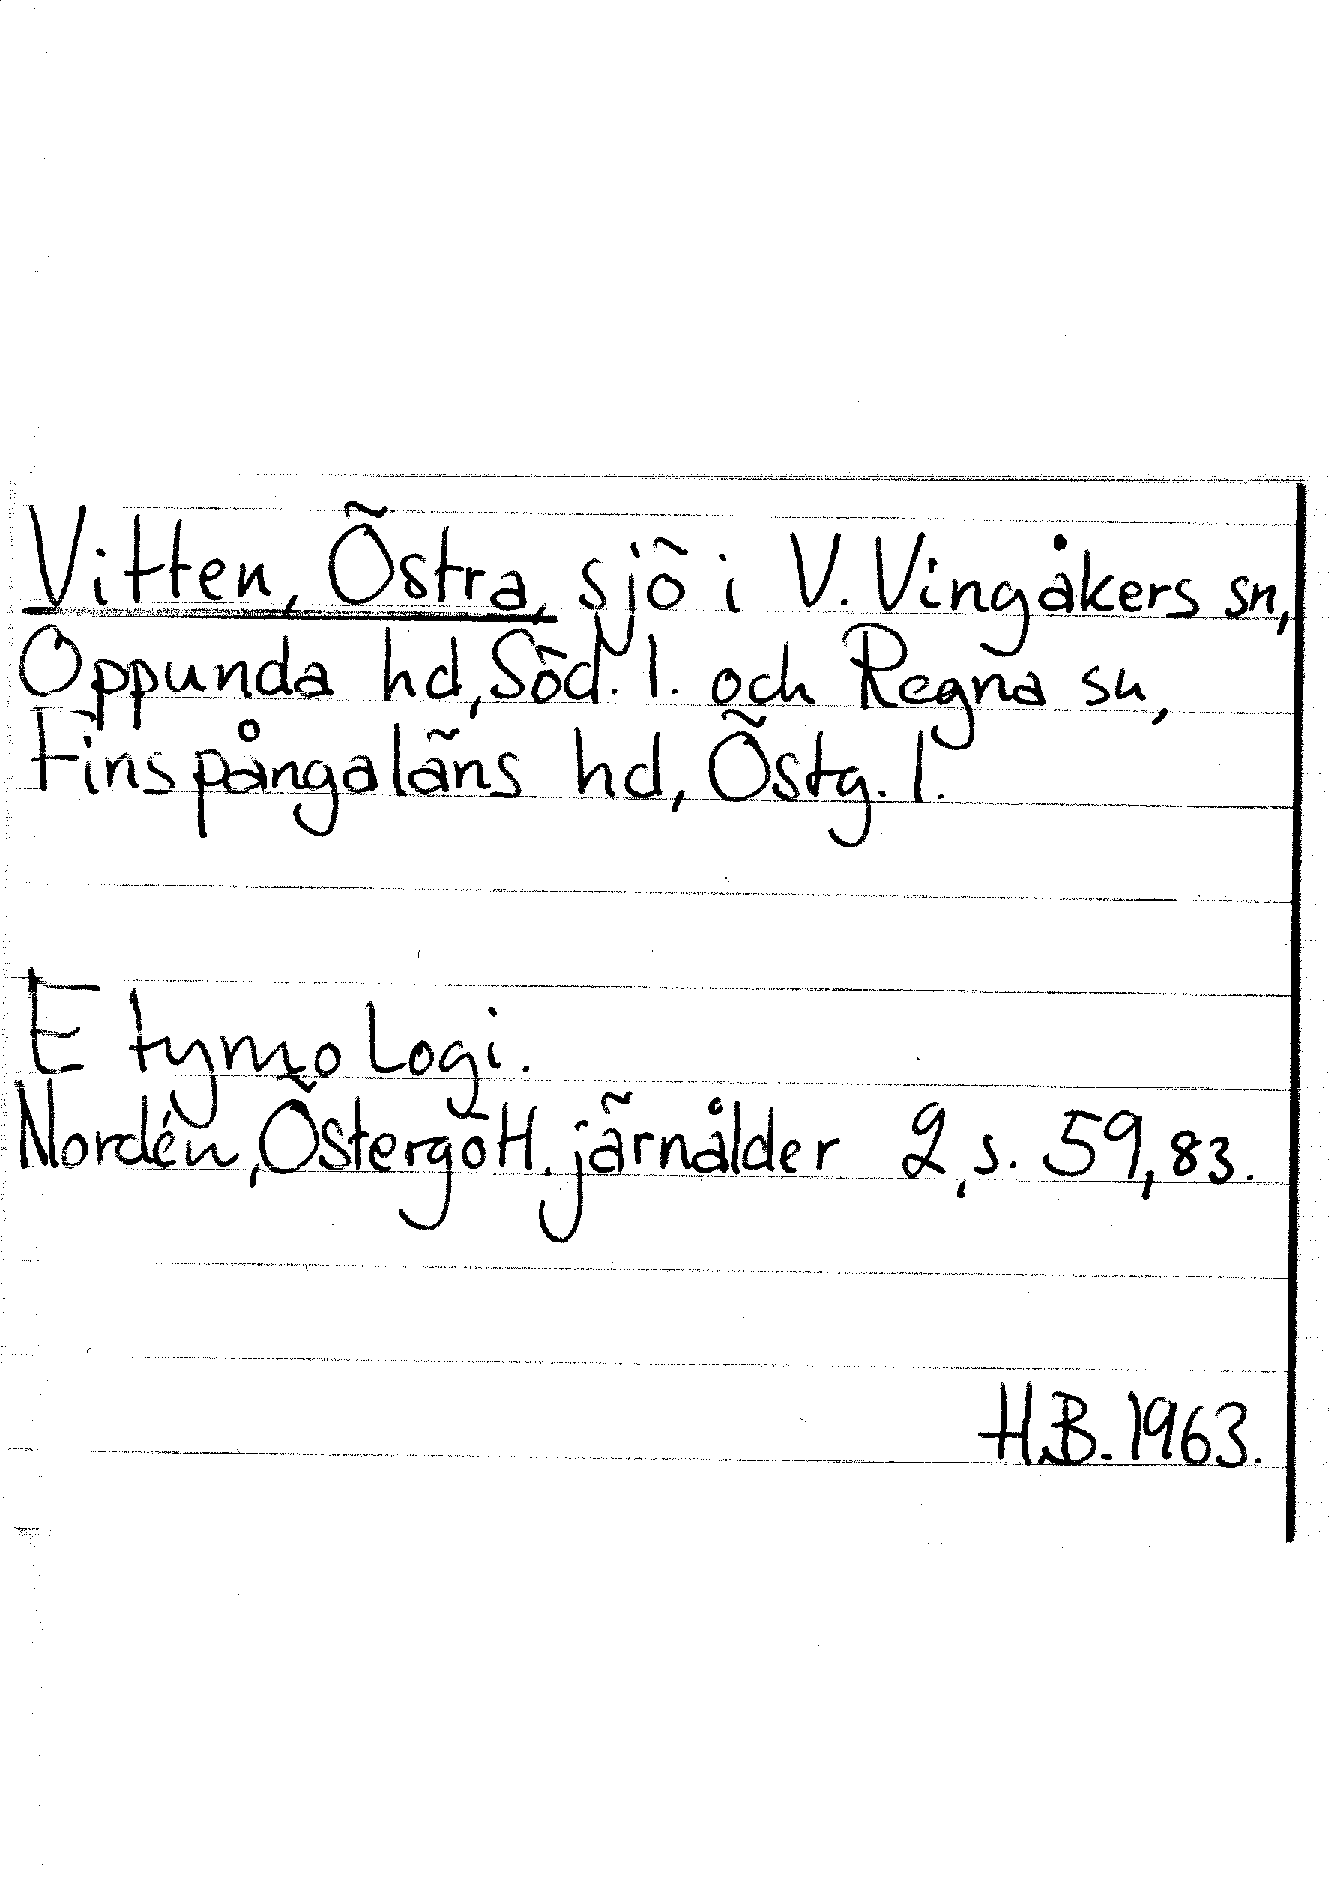 Vitten, Östra, sjö i V. Vingåkers sn,
Oppunda hd, Söd. l. och Regna sn,
Finspångaläns hd, Östg. l.
Etymologi.
Nordén, Östergötl. järnålder 2, s. 59, 83.
H.B. 1963.